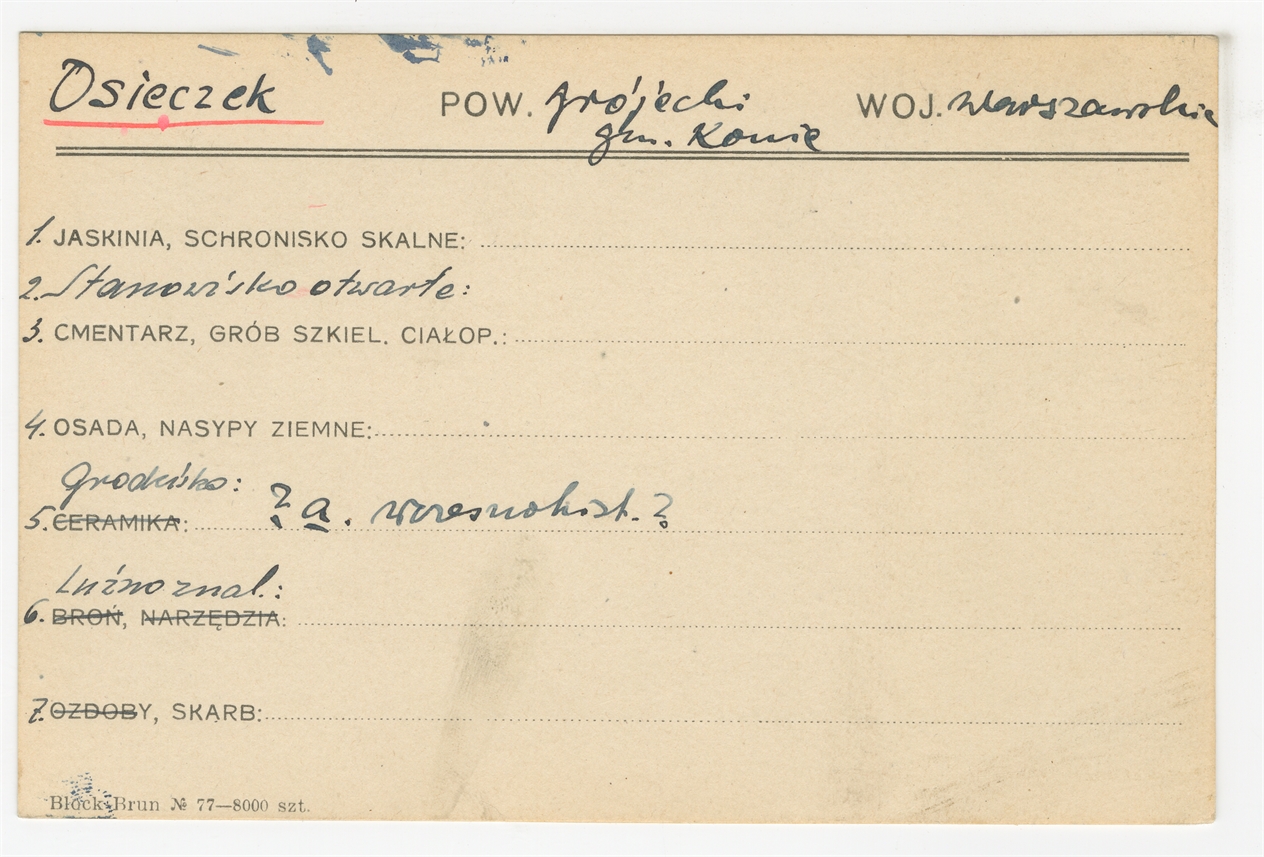 Osieczek POW. grójecki WOJ. warszawskie
gm. Konie
1. JASKINIA, SCHRONISKO SKALNE:
2. Stanowisko otwarte:
3. CMENTARZ, GRÓB SZKIEL. CIAŁOP.:
4. OSADA, NASYPY ZIEMNE:
Grodzisko:
5. CERAMIKA: ? a. wczesnohist. ?
Luźno znal.:
6. BROŃ, NARZĘDZIA:
7. OZDOBY, SKARB:
Block-Brun № 77—8000 szt.